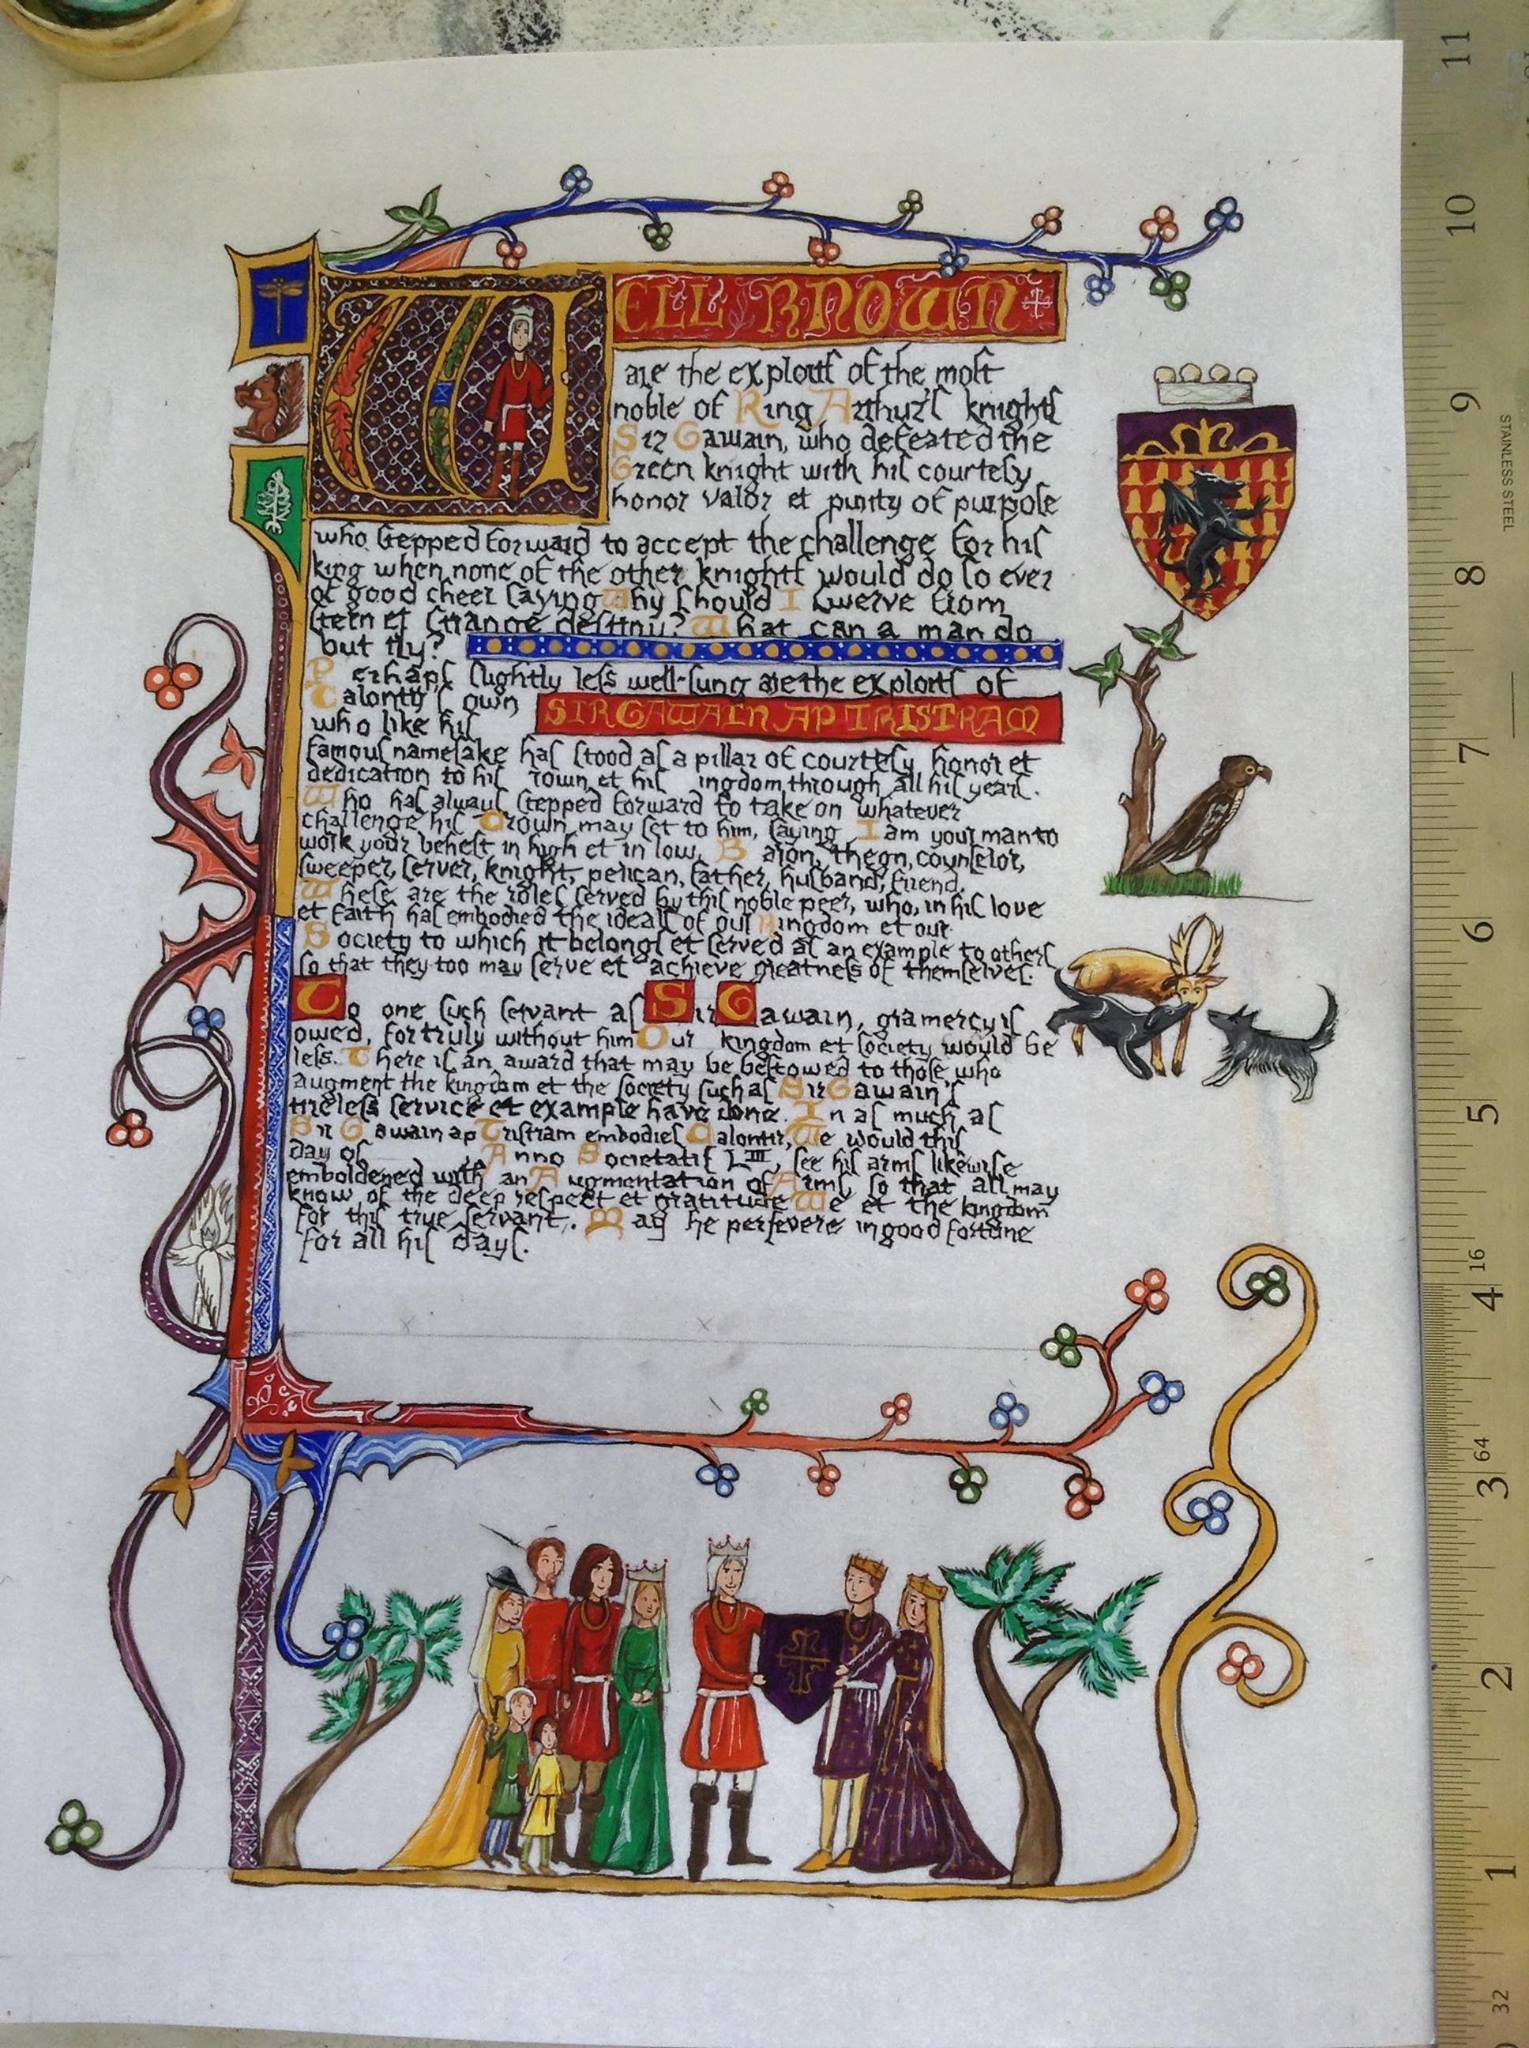 WELL KNOWN
are the exploits of the most
noble of King Arthur's knights
Sir Gawain, who defeated the
Green knight with his courtesy
honor valor et purity of purpose
who stepped forward to accept the challenge for his
king when none of the other knights would do so ever
of good cheer saying Why should I swerve from
stern et strange destiny? What can a man do
but try?
Perhaps slightly less well-sung are the exploits of
Calontir's own SIR GAWAIN AP TRISTRAM
who like his
famous namesake has stood as a pillar of courtesy honor et
dedication to his rown et his ingdom through all his years.
Who has always stepped forward to take on whatever
challenge his Crown may set to him, saying I am your man to
work your behest in high et in low. Baron, thegn, counselor,
sweeper, server, knight, pelican, father, husband, friend.
These are the roles served by this noble peer, who, in his love
et faith has embodied the ideals of our Kingdom et our
Society to which it belongs et served as an example to others
so that they too may serve et achieve greatness of themselves.
To one such servant as Sir Gawain, gramercy is
owed, for truly without him Our kingdom et society would be
less. There is an award that may be bestowed to those, who
augment the kingdom et the society such as Sir Gawain's
tireless service et example have done. In as much as
Sir Gawain ap Tristram embodies Calontir, We would this
day of Anno Societatis LIII, see his arms likewise
emboldened with an Augmentation of Arms, so that all may
know of the deep respect et gratitude We et the kingdom
for this true servant. May he persevere in good fortune
for all his days.
11
10
9
STAINLESS STEEL
8
7
6
5
16
4
64
3
2
1
32